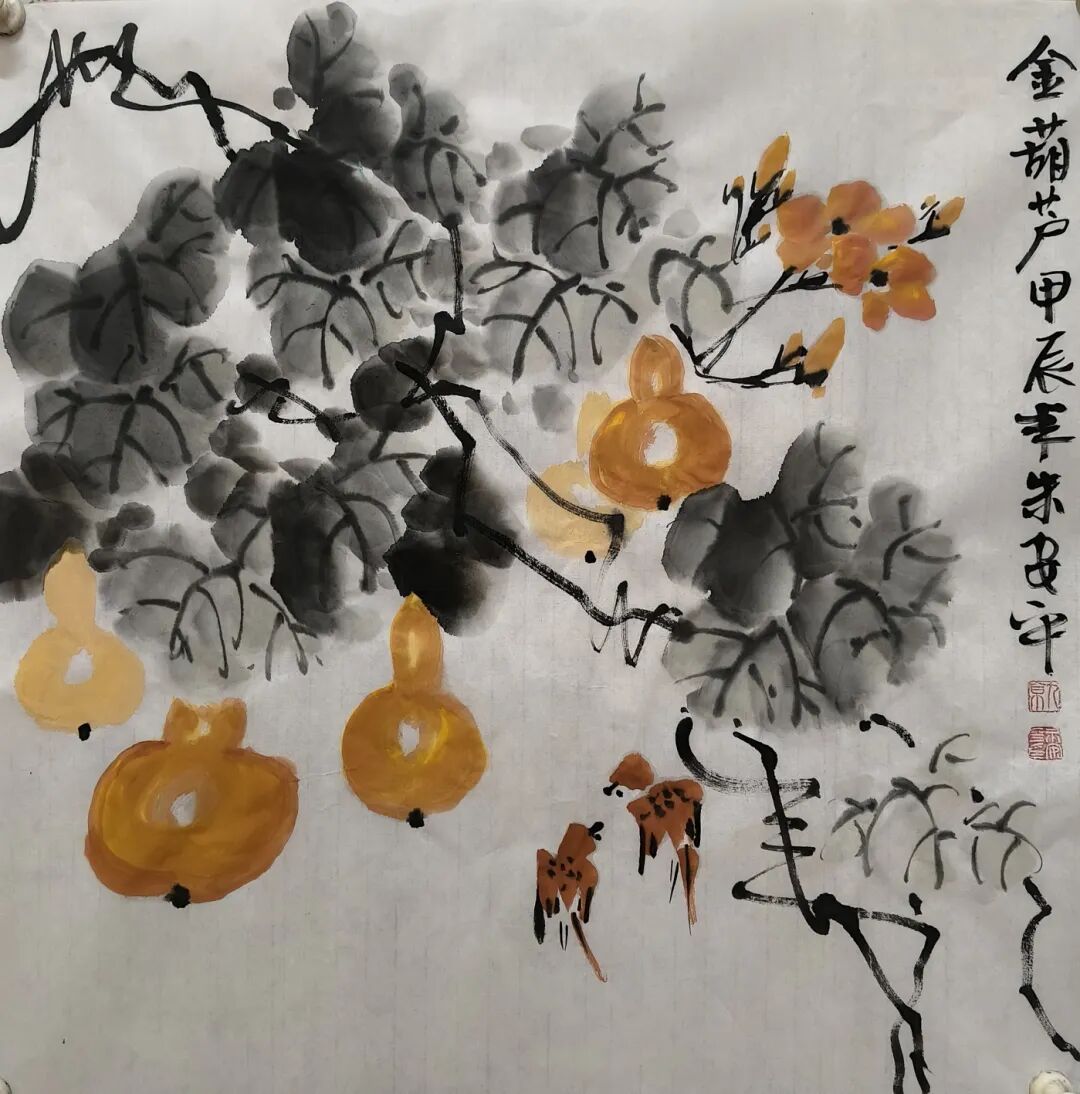 金葫芦甲辰年朱安平